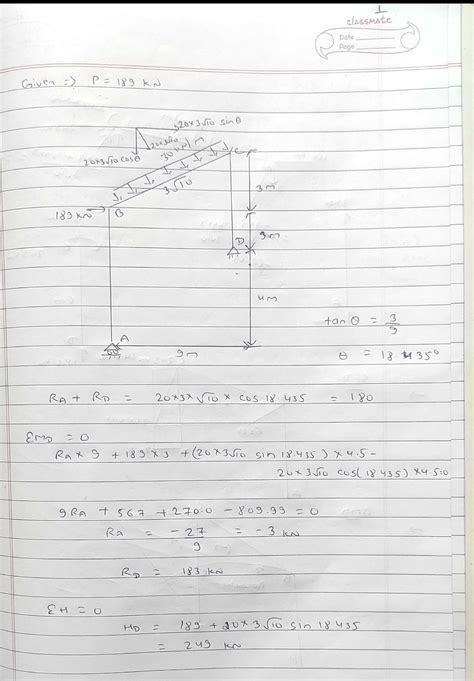 1
classmate
Date
Page
Given :⇒ P = 189 kN
20×3√10 sinθ
20×3√10
20×3√10 cosθ
30 kN/m
C
3√10
3m
189 kN
B
9m
D
4m
A
9m
tan θ = 3/9
θ = 18.435°
RA + RD = 20×3×√10 × cos 18.435 = 180
ΣMD = 0
RA × 9 + 189 × 3 + (20×3√10 sin 18.435) × 4.5 -
20×3√10 cos(18.435) × 4.5 = 0
9RA + 567 + 270.0 - 809.99 = 0
RA = -27/9 = -3 kN
RD = 183 kN
ΣH = 0
HD = 189 + 20×3√10 sin 18.435
= 249 kN